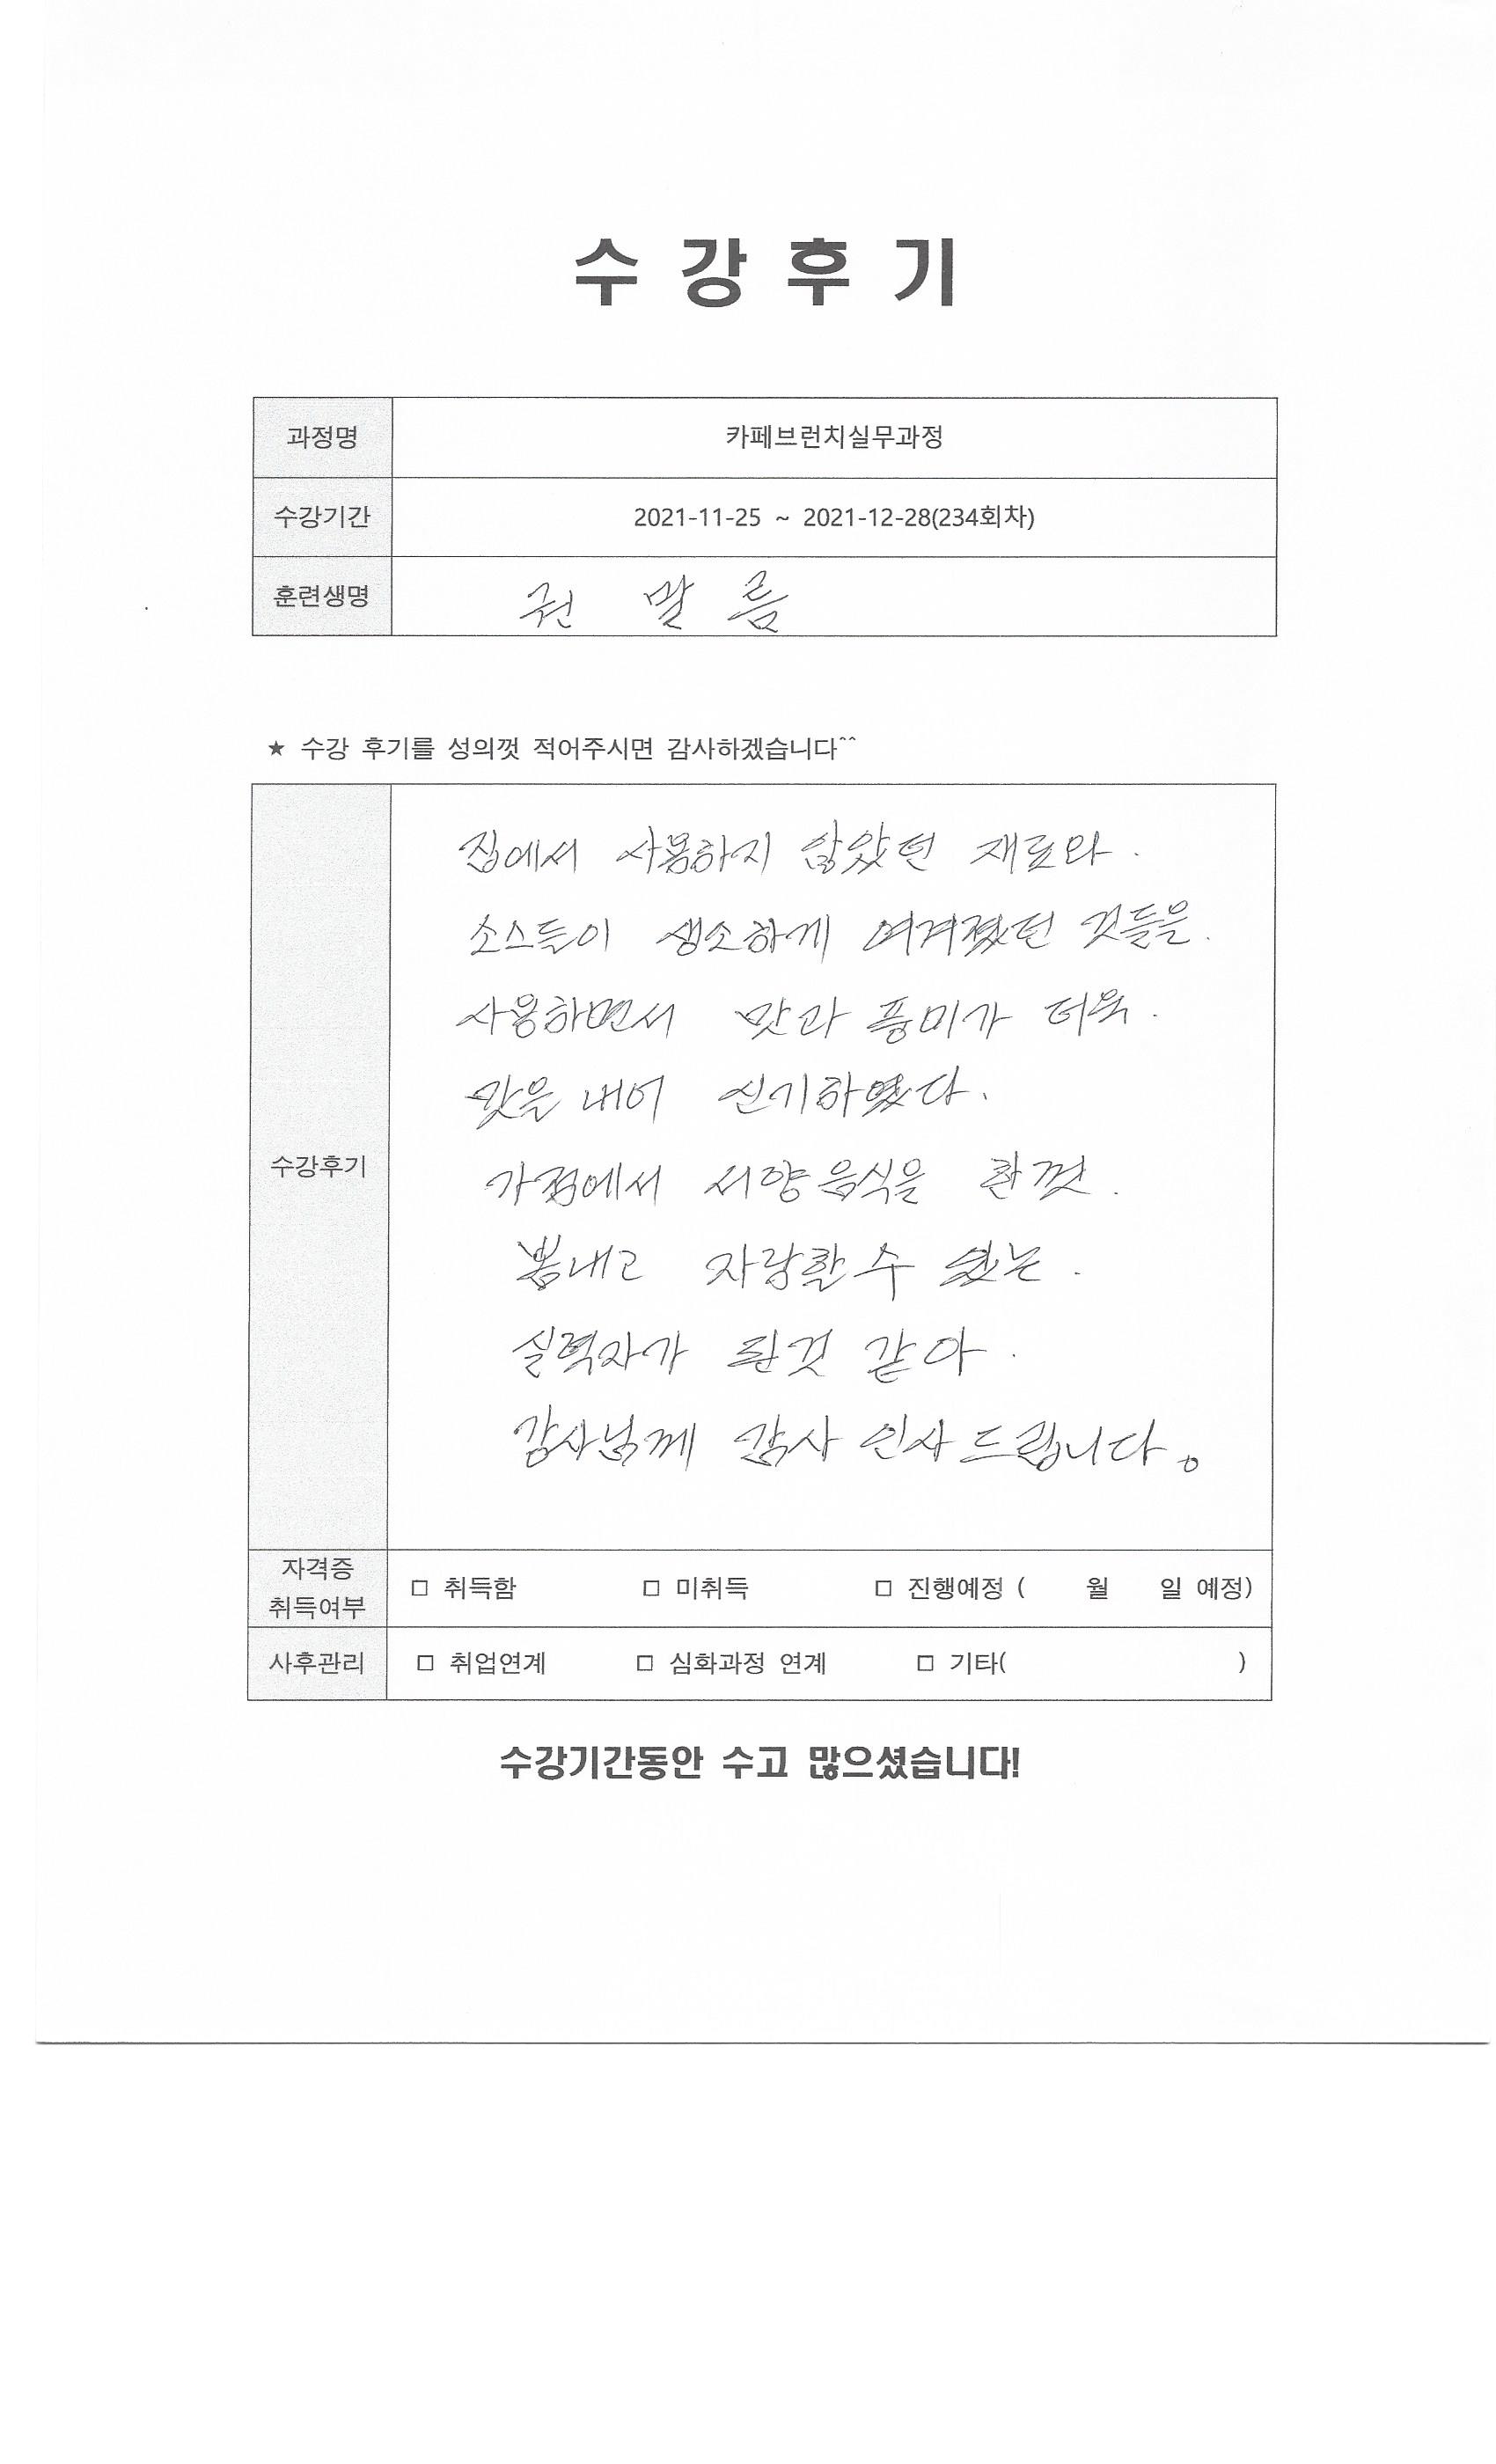 수강후기
과정명 카페브런치실무과정
수강기간 2021-11-25 ~ 2021-12-28(234회차)
훈련생명 권 말 름
★ 수강 후기를 성의껏 적어주시면 감사하겠습니다^^
수강후기
집에서 사용하지 않았던 재료와.
소스들이 생소하게 여겨졌던 것들을.
사용하면서 맛과 풍미가 더욱.
맛을 내어 신기하였다.
가정에서 서양음식을 한껏.
뽐내고 자랑할 수 있는.
실력자가 된것 같아.
강사님께 감사 인사 드립니다。
자격증
취득여부 □ 취득함 □ 미취득 □ 진행예정 ( 월 일 예정)
사후관리 □ 취업연계 □ 심화과정 연계 □ 기타( )
수강기간동안 수고 많으셨습니다!